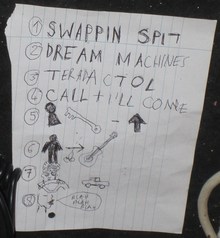 1 SWAPPIN SPIT
2 DREAM MACHINES
3 TERADACTOL
4 CALL + I'LL COME
5
6
7
8